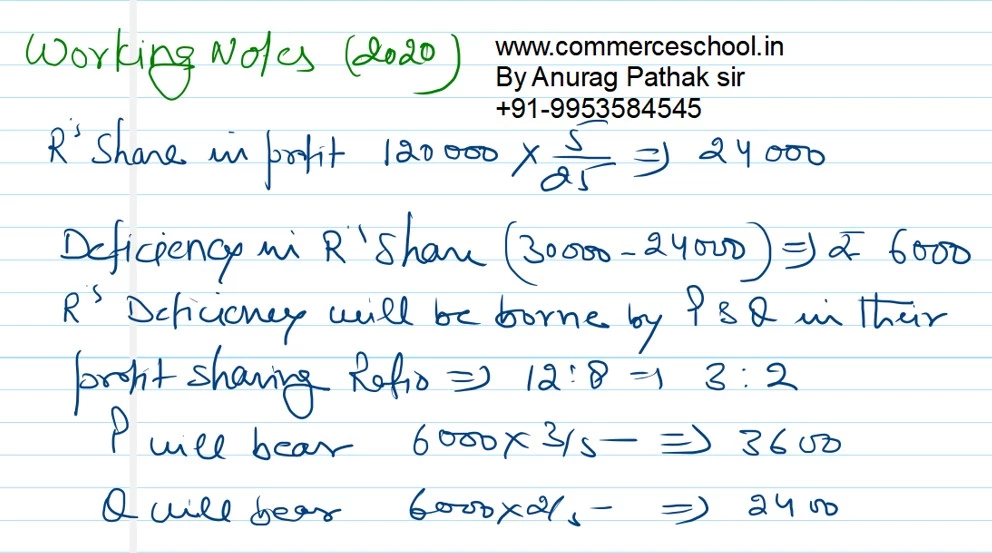 Working Notes (2020)
www.commerceschool.in
By Anurag Pathak sir
+91-9953584545
R's Share in profit 120000 × 5/25 ⇒ 24000
Deficiency in R's Share (30000 - 24000) ⇒ ₹ 6000
R's Deficiency will be borne by P & Q in their
profit sharing Ratio ⇒ 12:8 ⇒ 3:2
P will bear 6000 × 3/5 ⇒ 3600
Q will bear 6000 × 2/5 ⇒ 2400